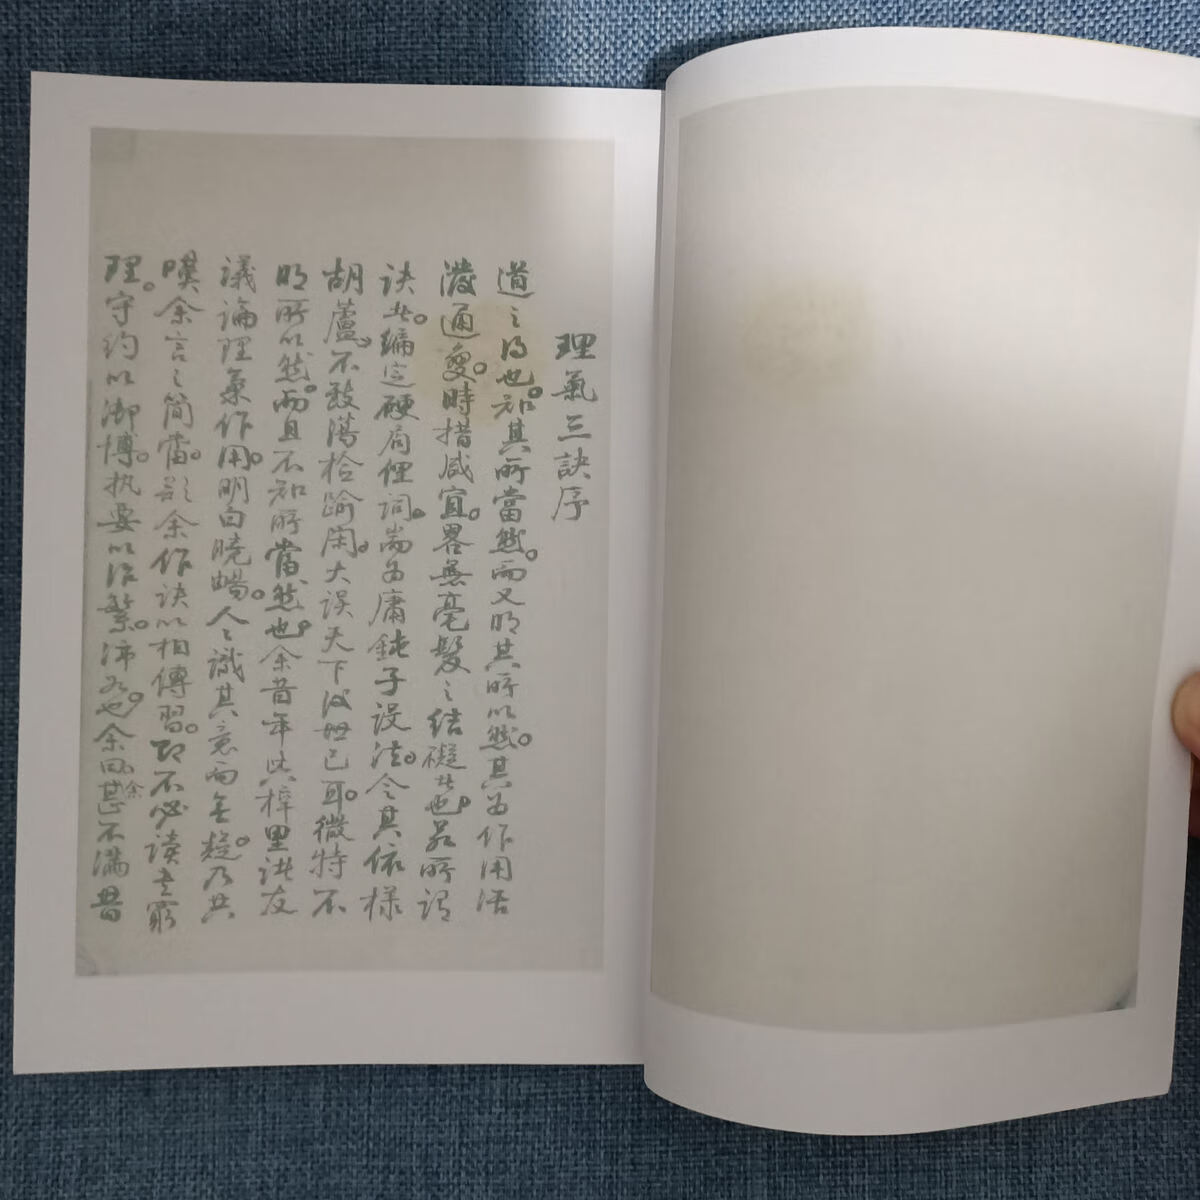 理氣三訣序
道之得也。知其所當然。而又明其所以然。其為作用活
潑通變。時措咸宜。畧無毫髮之結礙者也。若所謂
訣者。編定硬局俚詞。耑為庸鈍子設法。令其依樣
胡蘆。不敢蕩檢踰閑。大误天下後世已耳。微特不
明所以然。而且不知所當然也。余昔年與樟里洪友
議論理氣作用。明白曉暢。人々識其意而無疑。乃共
嘆余言之簡當。影余作訣以相傳習。即不必讀書窮
理。守約以御博。执要以治繁。沛如也。余甚不滿昔